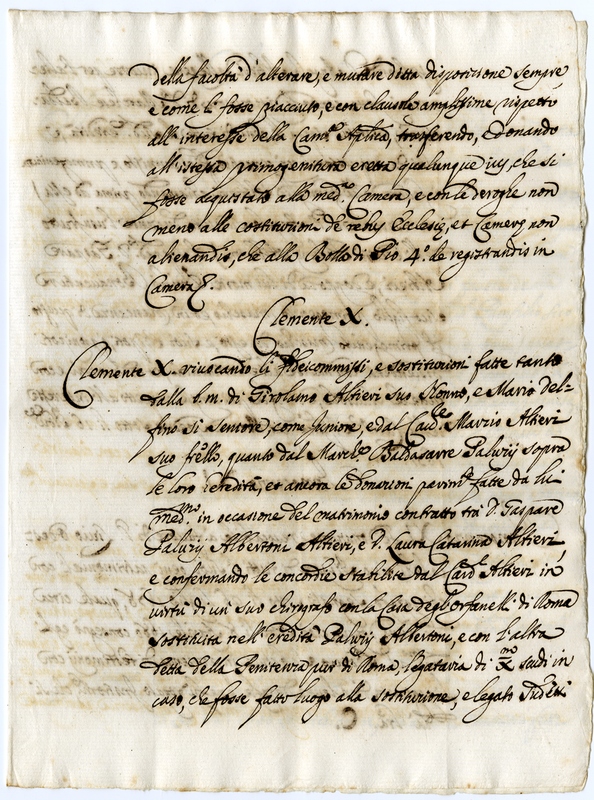 della facoltà d'alterare, e mutare ditta disposizione sempre,
e come li fosse piacciuto, e con clausole amplissime rispetto
all'interesse della Cam.ª Aplica, trasferendo, e Donando
all'istessa primogenitura eretta qualunque ius, che si
fosse acquistato alla med.ª Camera, e con le deroghe non
meno alle costituzioni de rebus Ecclesiæ, et Cameræ non
alienandis, che alla Bolla di Pio 4.º de registrandis in
Camera
Clemente X.
Clemente X. rivocando li fideicommissi, e sostituzioni fatte tanto
dalla b.m. di Girolamo Altieri suo Nonno, e Mario Del=
fino si seniore, come Juniore, e dal Card.le Marzio Altieri
suo frēllo, quanto dal March.e Baldasarre Paluzij sopra
le loro eredità, et ancora le donazioni fatte da lui
med.mo in occasione del matrimonio contratto trà D. Gaspare
Paluzij Albertoni Altieri, e D. Laura Catarina Altieri,
e confermando le concordie stabilite dal Card. Altieri in
virtù di un' suo chirografo con la Casa degl'Orfanelli di Roma
sostituita nell'eredità Paluzij Albertoni, e con l'altra
detta della Penitenza pur di Roma, legataria di X.mo scudi in
caso, che fosse fatto luogo alla sostituzione, e legato